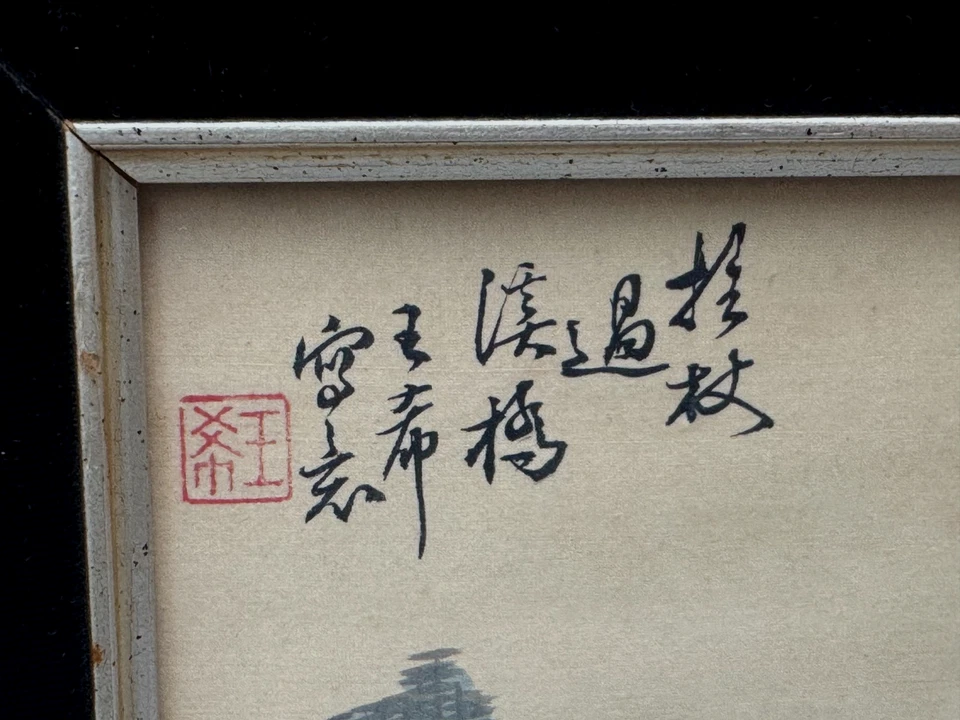 拄杖
過
溪橋
王希
寫意
王希